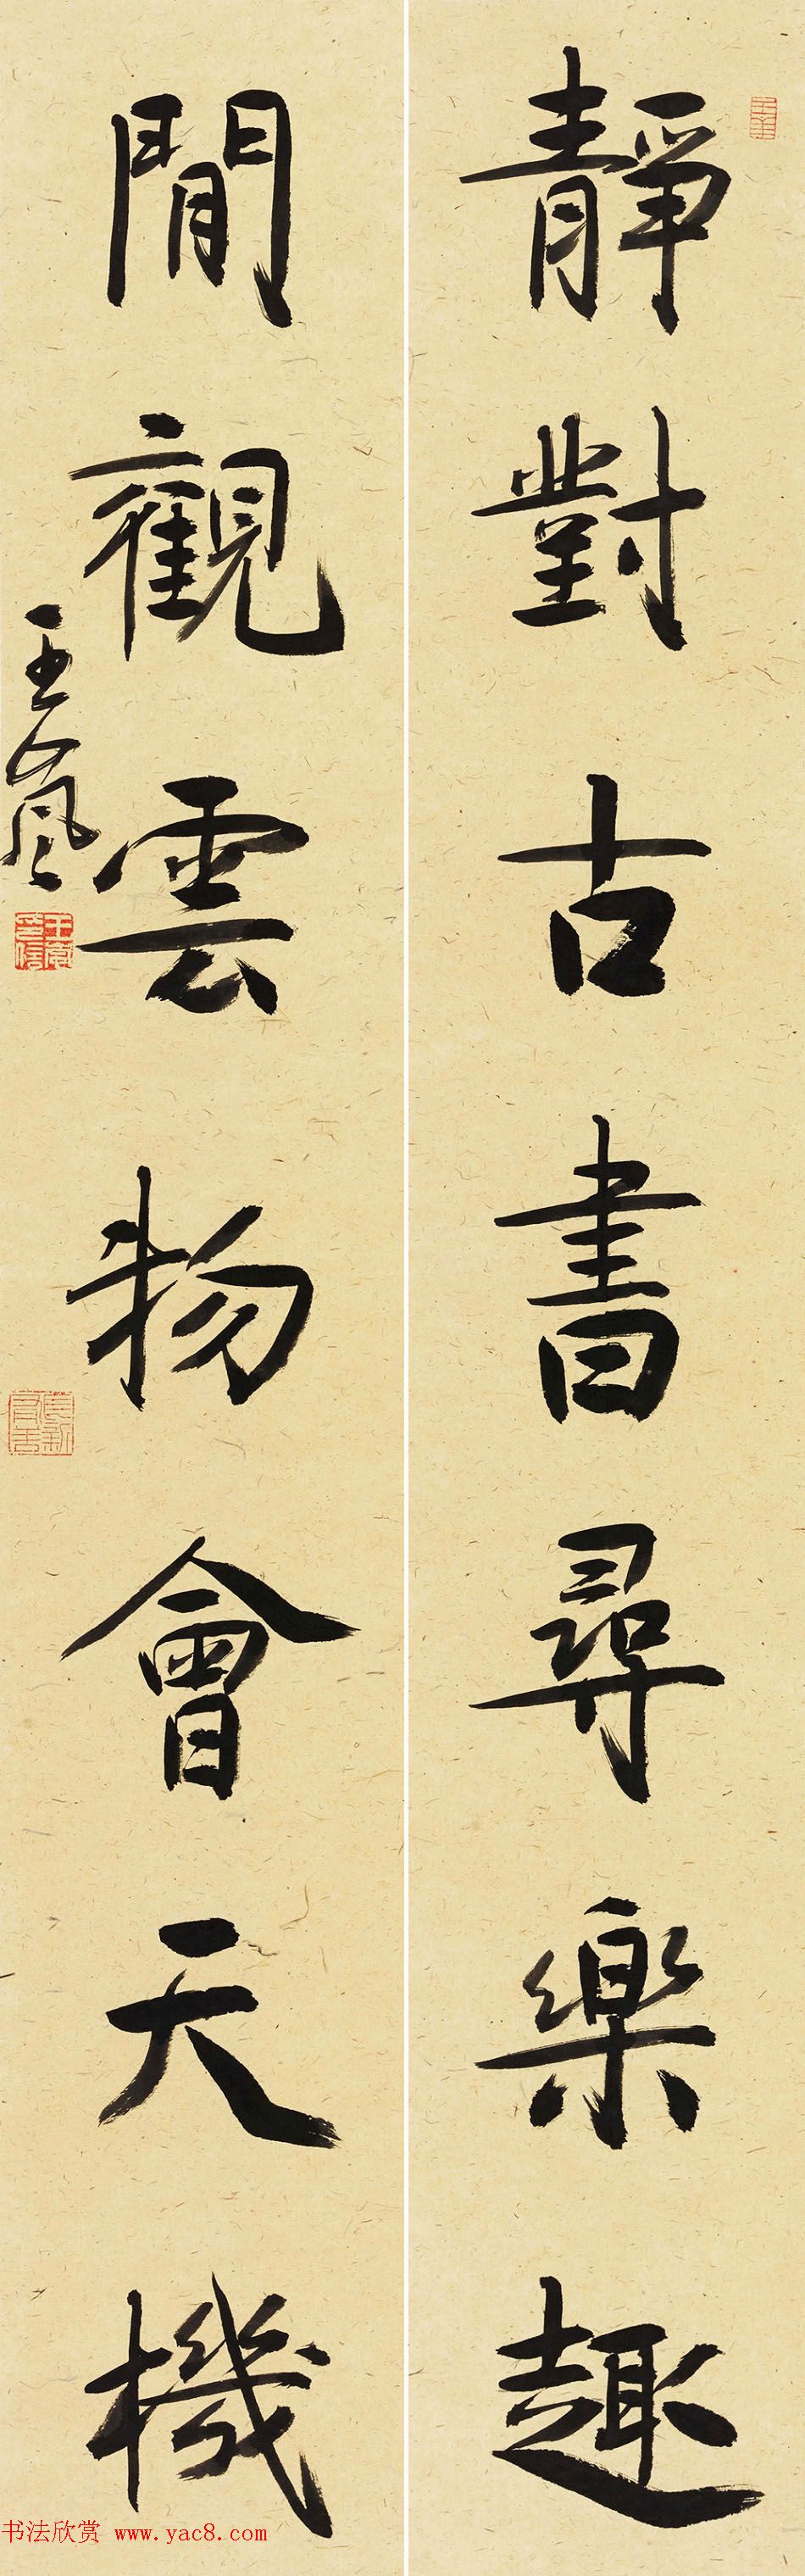 靜對古書尋樂趣
閒觀雲物會天機
书法欣赏 www.yac8.com